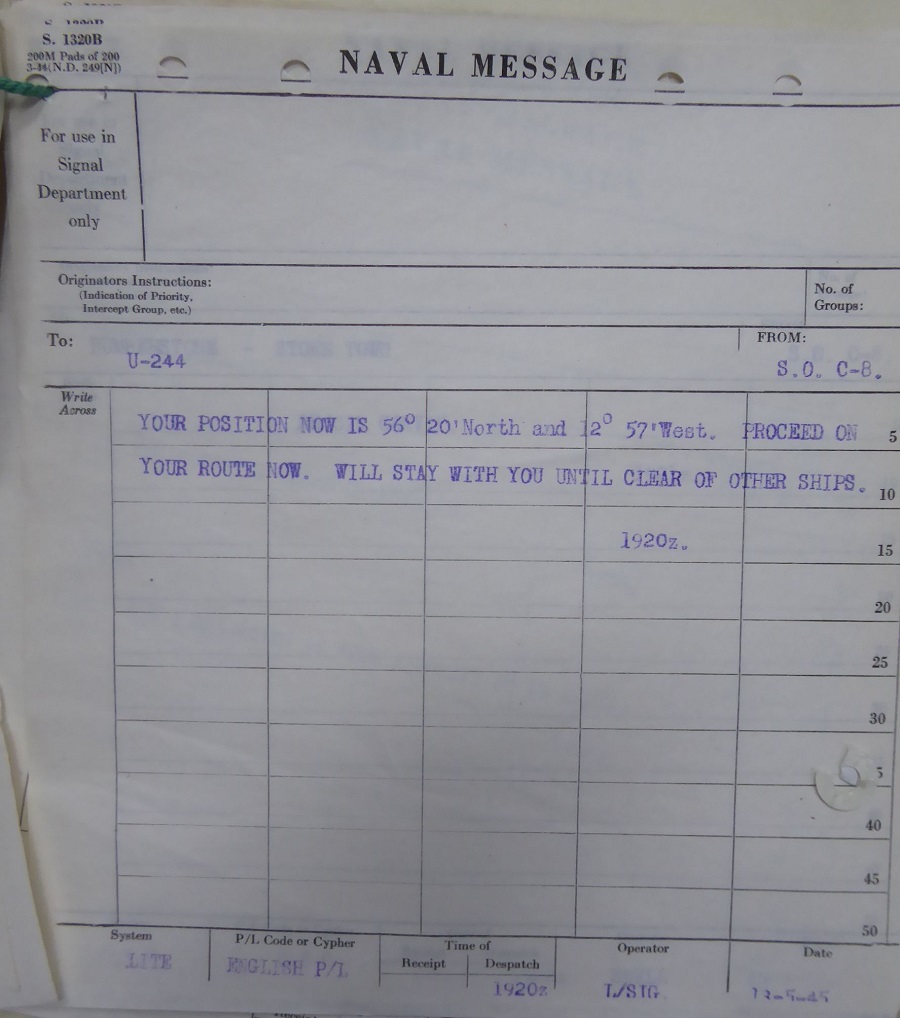 S. 1320B
200M Pads of 200
3-44(N.D. 249[N])
NAVAL MESSAGE
For use in
Signal
Department
only
Originators Instructions:
(Indication of Priority,
Intercept Group, etc.)
No. of
Groups:
To:
U-244
FROM:
S.O. C-8.
Write
Across
YOUR POSITION NOW IS 56° 20'North and 12° 57'West. PROCEED ON 5
YOUR ROUTE NOW. WILL STAY WITH YOU UNTIL CLEAR OF OTHER SHIPS. 10
1920z. 15
20
25
30
5
40
45
50
System
LITE
P/L Code or Cypher
ENGLISH P/L
Time of
Receipt
Despatch
1920z
Operator
L/SIG
Date